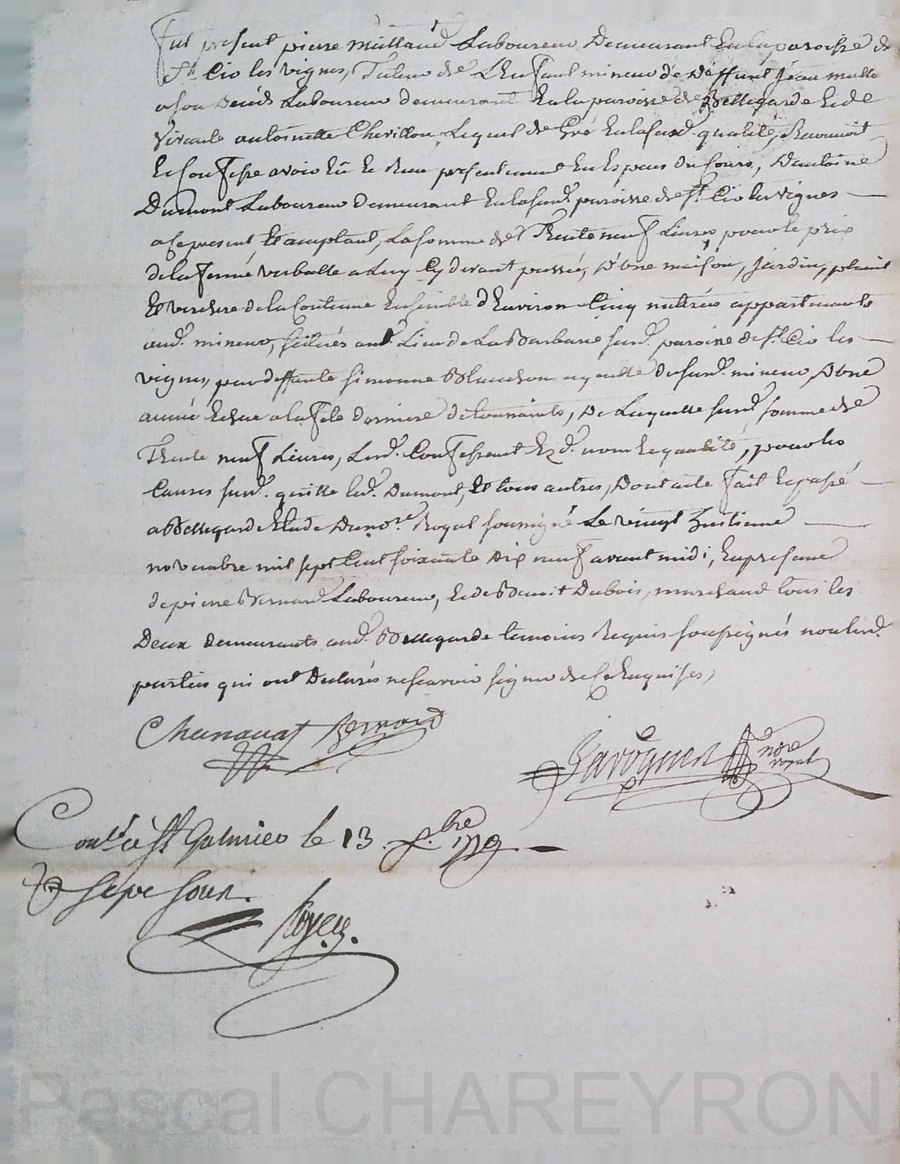 fut present pierre Mulland Laboureur Demeurant En la paroisse de
St. Cir les vignes, Tuteur de L'Enfant mineur de Deffunt Jean mulla
a son Decéds Laboureur demeurant En la paroisse de Bellegarde Et de
vivante antoinette Chevillon, Lequel de Gré En la susd. qualité, Reconnoit
Et Confesse avoir Eü Et Reçu presentement En Especes du Cours, D'antoine
Dumont Laboureur demeurant En la susd. paroisse de St. Cir les vignes
a Ce present Et acceptant, La somme de Trente neuf Livres, pour le prix
de la ferme verballe a Luy Cy devant passée, D'une maison, Jardin,
Et verchere de la Contenue Ensemble d'Environ Cinq metérées appartenants
aud. mineur, scitués au Lieu de La Barbarie susd. paroisse de St. Cir les
vignes, par deffunte Simonne Blanchon ayeulle du susd. mineur, D'une
année Echue a la fete derniere de toussaints, De Laquelle susd. somme de
Trente neuf Livres, Led. Confessant Ezd. nom Et qualité, pour les
Causes susd. quitte led. Dumont, Et tous autres, Dont acte fait Et passé
a Bellegarde Etude Du nore. Royal soussigné Le vingt huitieme
novembre mil sept Cent soixante Dix neuf avant midi, En presence
de pierre Bernard Laboureur, Et de Benoit Dubois, marchand tous les
Deux demeurants aud. Bellegarde temoins Requis soussignés non lesd.
parties qui ont Declarés ne scavoir signer de ce Enquises,
Bernard
nore royal
Conlé à St. Galmier le 13 Xbre 1779